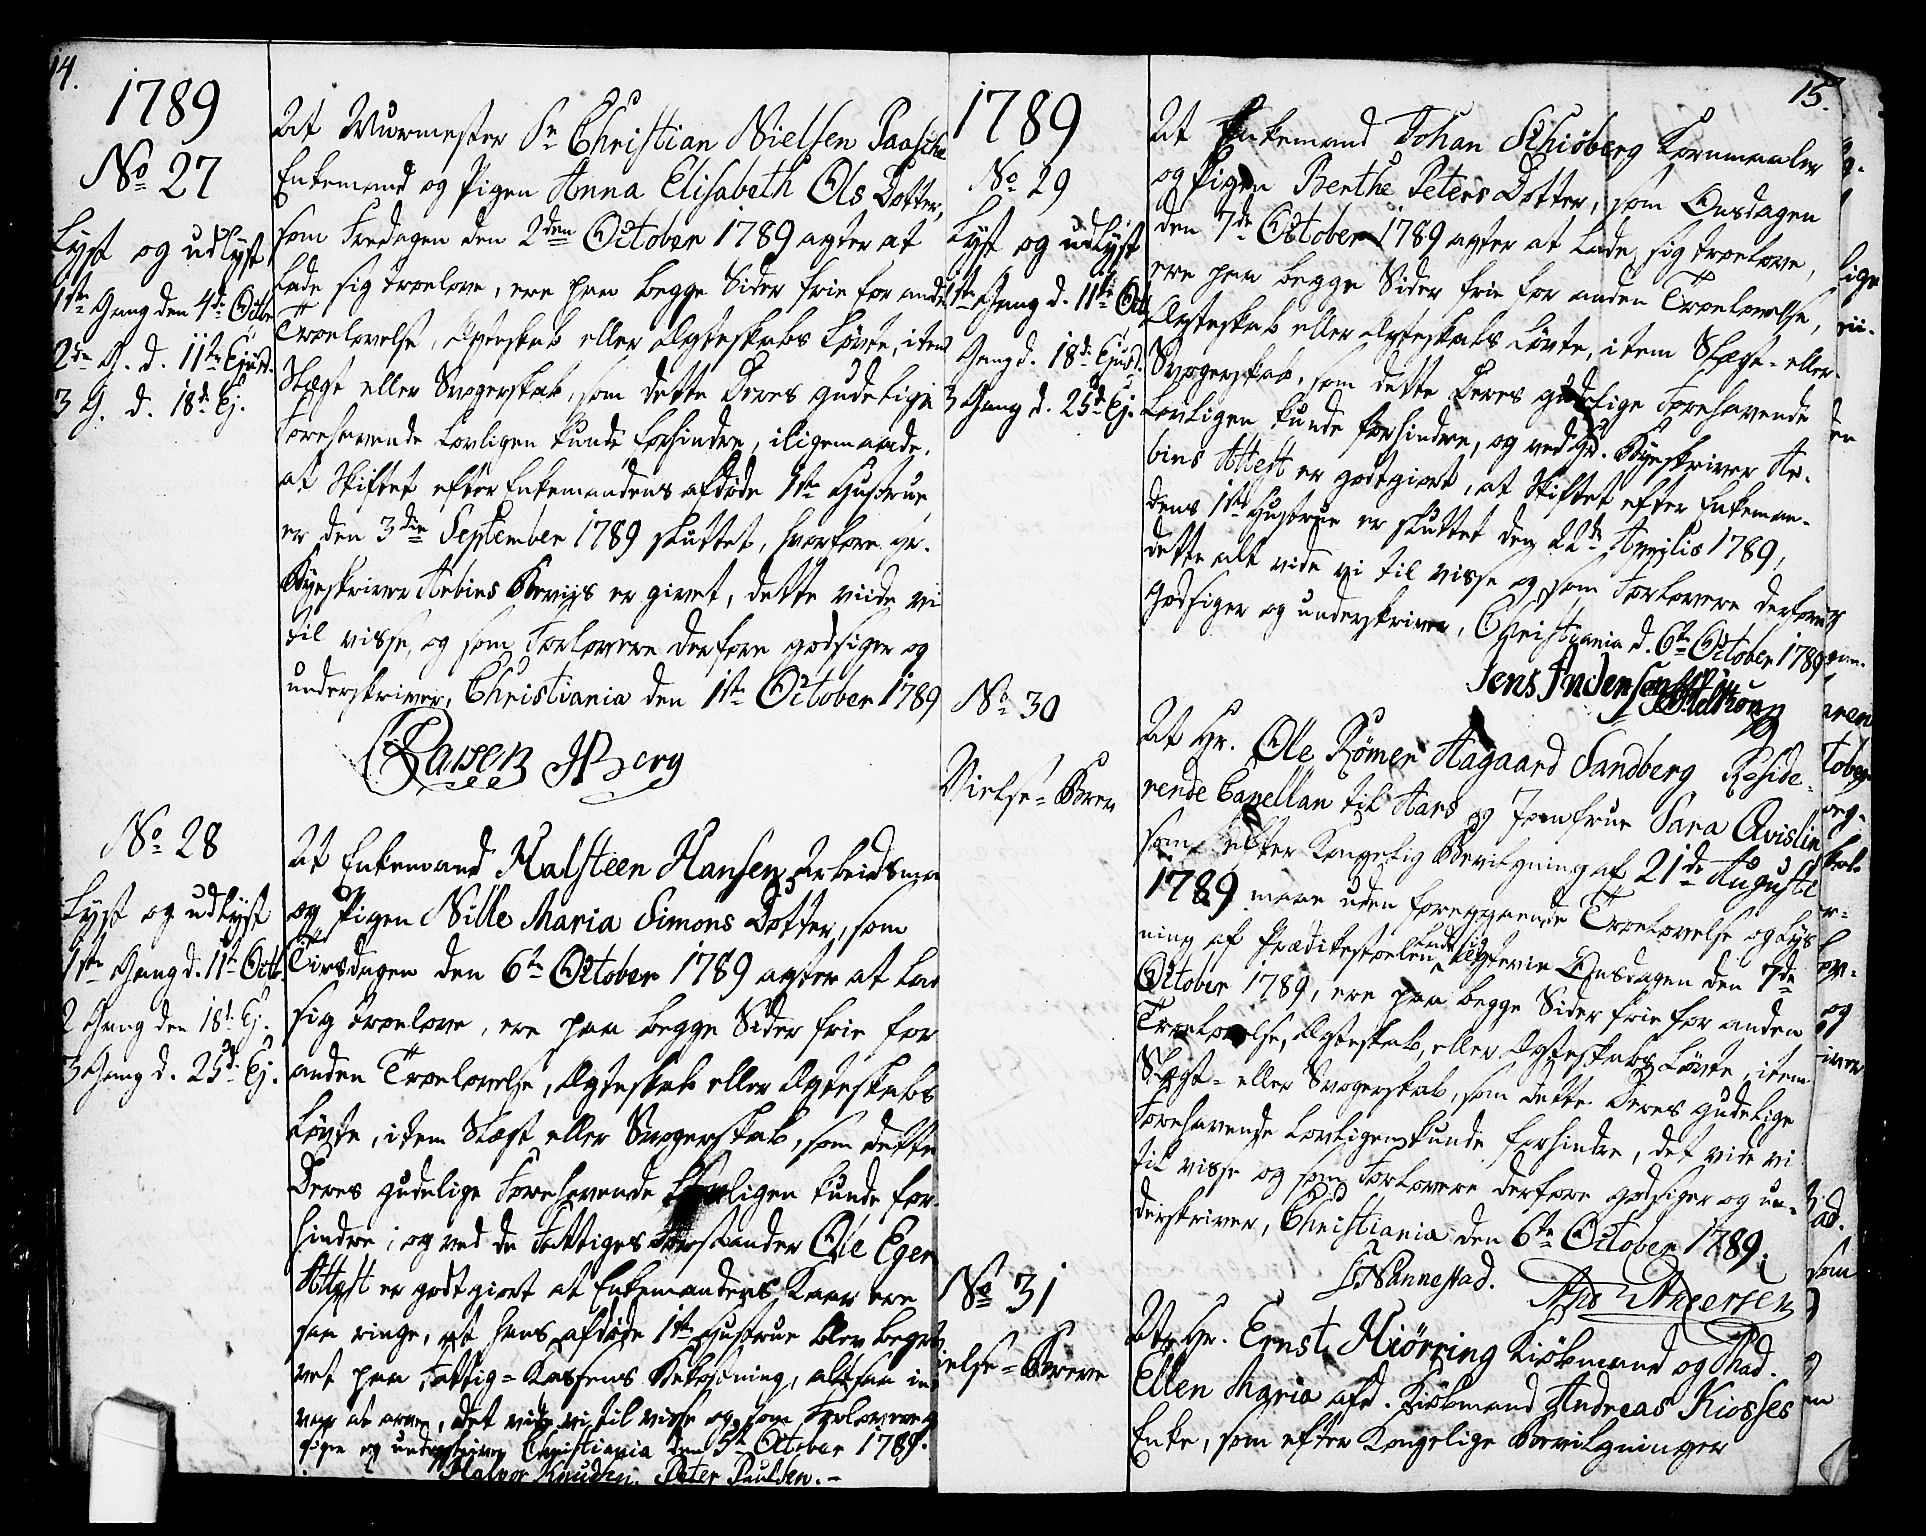 14.
1789
No 27
Lyst og udlyst
1ste Gang den 4de Octbr
2den G. d. 11te Ejusd.
3 G. d. 18de Ej.
At Murmester Sr Christian Nielsen Paasche
Enkemand og Pigen Anna Elisabeth Ols Dotter,
som Fredagen den 2den October 1789 agter at
lade sig troelove, ere paa begge Sider frie for anden
Troelovelse, Ægteskab eller Ægteskabs Løvte, item
Slægt eller Svogerskab, som dette Deres gudelige
Forehavende lovligen kunde forhindre, iligemaade,
at Skiftet efter Enkemandens afdøde 1ste Hustrue,
er den 3die September 1789 sluttet, hvorfore Hr.
Byeskriver Aebins Beviis er givet, dette viide vi
til visse, og som Forlovere derfore godsiger og
underskriver, Christiania den 1ste October 1789
Larsen JBerg
No 28
Lyst og udlyst
1ste Gang d. 11te Octbr.
2 Gang den 18de Ej.
3 Gang d. 25de Ej.
At Enkemand Halsteen Hansen Arbeidsman
og Pigen Nille Maria Simons Dotter, som
Tirsdagen den 6te October 1789 agter at lade
sig troelove, ere paa begge Sider frie for
anden Troelovelse, Ægteskab eller Ægteskabs
Løvte, item Slægt eller Svogerskab, som dette
Deres gudelige Forehavende lovligen kunde for-
hindre; og ved de Fattiges Forstander Ole Eger
Attest er godtgiort at Enkemandens Kaar ere
saa ringe, at hans afdøde 1ste Hustrue blev begra-
vet paa Fattig-Kassens Bekostning, altsaa in-
var at arve, det vide vi til visse og som Forlovere
siger og underskriver Christiania den 5te October 1789.
Halvor Knudsen. Peter Paulsen.
15.
1789
No 29
Lyst og udlyst
1ste Gang d. 11te Oct
Gang d. 18de Ejusd.
3 Gang d. 25de Ej.
At Enkemand Johan Schiøberg Kornmaaler
og Pigen Berthe Peters Dotter, som Onsdagen
den 7de October 1789 agter at lade sig troelove,
ere paa begge Sider frie for anden Troelovelse,
Ægteskab eller Ægteskabs Løvte, item Slægt- eller
Svogerskab, som dette Deres gudelige Forehavende
lovligen kunde forhindre, og ved Hr. Byeskriver Ae-
bins Attest er godtgiort, at Skiftet efter Enkeman-
dens 1ste Hustrue er sluttet den 22de Aprilis 1789,
dette alt vide vi til visse og som Forlovere derfore
Godsiger og underskriver, Christiania d. 6te October 1789
Jens Andersen
No 30
Vielse-Brev
At Hr. Ole Rømer Aagaard Sandberg Reside-
rende Capellan til Aars og Jomfrue Sara Qvislin
som efter Kongelig Bevilgning af 21de Augusti
1789 maae uden foregaaende Troelovelse og Lys-
ning af Prædikestoelen lade sig Copulere Onsdagen den 7de
October 1789, ere paa begge Sider frie for anden
Troelovelse, Ægteskab, eller Ægteskabs Løvte, item
Slægt- eller Svogerskab, som dette Deres gudelige
Forehavende lovligen kunde forhindre, det vide vi
til visse og som Forlovere derfore godsiger og un-
derskriver, Christiania den 6te October 1789.
Nannestad. Andersen
No 31
ielse-Breve
At Hr. Ernst Hiørring Kiøbmand og Mad.
Ellen Maria afd. Kiøbmand Andreas Kiosses
Enke, som efter Kongelige Bevilgninger